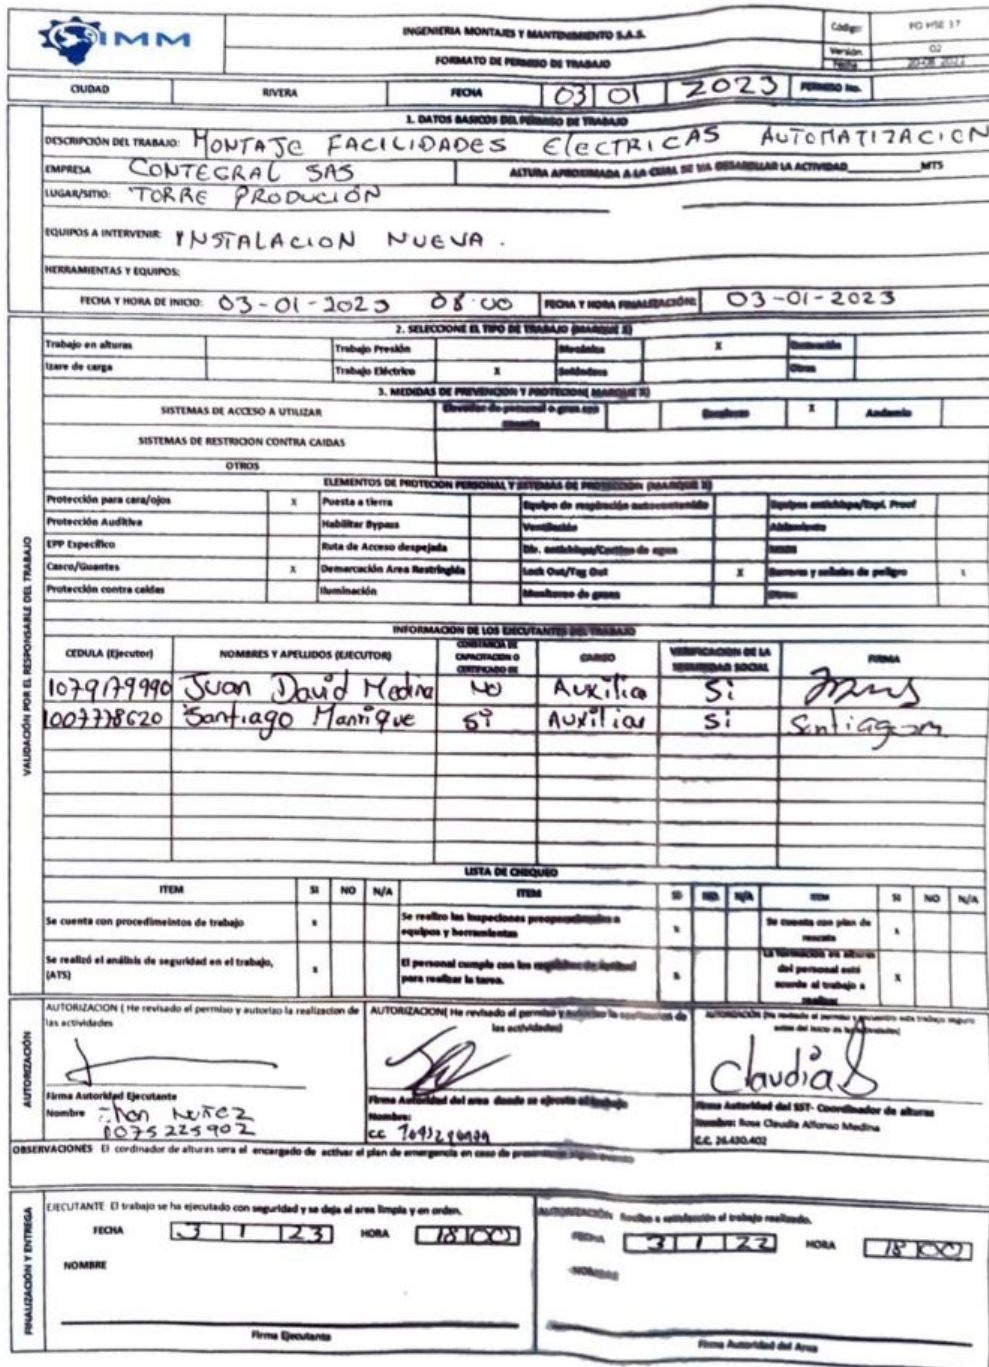 SIMM
INGENIERIA MONTAJES Y MANTENIMIENTO S.A.S.
FORMATO DE PERMISO DE TRABAJO
Código: PO HSE 17
Versión 02
Fecha 20-08-2022
CIUDAD RIVERA FECHA 03 01 2023 PERMISO No.
1. DATOS BASICOS DEL PERMISO DE TRABAJO
DESCRIPCIÓN DEL TRABAJO: MONTAJE FACILIDADES ELECTRICAS AUTOMATIZACION
EMPRESA CONTEGRAL SAS ALTURA APROXIMADA A LA CUAL SE VA DESAROLLAR LA ACTIVIDAD MTS
LUGAR/SITIO: TORRE PRODUCIÓN
EQUIPOS A INTERVENIR: INSTALACION NUEVA.
HERRAMIENTAS Y EQUIPOS:
FECHA Y HORA DE INICIO: 03-01-2023 08:00 FECHA Y HORA FINALIZACIÓN: 03-01-2023
2. SELECCIONE EL TIPO DE TRABAJO (MARQUE X)
Trabajo en alturas Trabajo Presión Mecánica X Excavación
Izare de carga Trabajo Eléctrico X Soldadura Otros
3. MEDIDAS DE PREVENCION Y PROTECION( MARQUE X)
SISTEMAS DE ACCESO A UTILIZAR Elevador de personal o grua con canasta Escaleras X Andamio
SISTEMAS DE RESTRICION CONTRA CAIDAS
OTROS
ELEMENTOS DE PROTECION PERSONAL Y SISTEMAS DE PROTECCION (MARQUE X)
Protección para cara/ojos X Puesta a tierra Equipo de respiración autocontenido Equipos antichispa/Expl. Proof
Protección Auditiva Habilitar Bypass Ventilación Aislamiento
EPP Específico Ruta de Acceso despejada Div. antichispa/Cortina de agua
Casco/Guantes X Demarcación Area Restringida Lock Out/Tag Out X Barreras y señales de peligro X
Protección contra caidas Iluminación Monitoreo de gases Otros:
VALIDACIÓN POR EL RESPONSABLE DEL TRABAJO
INFORMACION DE LOS EJECUTANTES DEL TRABAJO
CEDULA (Ejecutor) NOMBRES Y APELLIDOS (EJECUTOR) CONSTANCIA DE CAPACITACION O CERTIFICADO DE CARGO VERIFICACION DE LA SEGURIDAD SOCIAL FIRMA
1079179990 Juan David Medina NO Auxiliar Si
1007778620 Santiago Manrique Si Auxiliar Si Santiago m
LISTA DE CHEQUEO
ITEM SI NO N/A ITEM SI NO N/A ITEM SI NO N/A
Se cuenta con procedimeintos de trabajo x Se realizo las inspecciones preoperacionales a equipos y herramientas x Se cuenta con plan de rescate x
Se realizó el análisis de seguridad en el trabajo, (ATS) x El personal cumple con los requisitos de aptitud para realizar la tarea. x La formación en alturas del personal está acorde al trabajo a realizar X
AUTORIZACIÓN
AUTORIZACION ( He revisado el permiso y autorizo la realizacion de las actividades
AUTORIZACION( He revisado el permiso y autorizo la realizacion de las actividades)
AUTORIZACIÓN (He revisado el permiso y encuentro este trabajo seguro antes del inicio de las actividades)
Claudia
Firma Autoridad Ejecutante
Nombre Jhon Nuñez
1075225902
Firma Autoridad del area donde se ejecuta el trabajo
Nombre:
cc
Firma Autoridad del SST- Coordinador de alturas
Nombre: Rosa Claudia Alfonso Medina
C.C. 26.430.402
OBSERVACIONES El cordinador de alturas sera el encargado de activar el plan de emergencia en caso de presentarse algun evento
FINALIZACIÓN Y ENTREGA
EJECUTANTE El trabajo se ha ejecutado con seguridad y se deja el area limpia y en orden.
FECHA 3 1 23 HORA 18 00
NOMBRE
Firma Ejecutante
AUTORIZACIÓN Recibo a satisfacción el trabajo realizado.
FECHA 3 1 22 HORA 18 00
NOMBRE
Firma Autoridad del Area